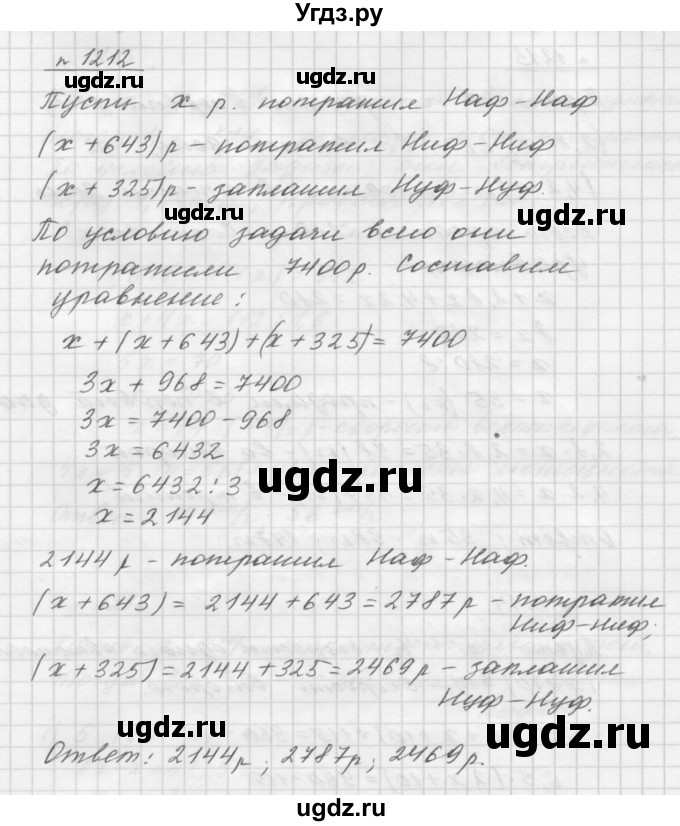 Угдз.ру
n 1212
ugdz.ru ugdz.ru
Пусть х р. потратил Наф-Наф
(х + 643) р - потратил Ниф-Ниф
(х + 325) р - заплатил Нуф-Нуф.
ugdz.ru ugdz.ru
По условию задачи всего они
потратили 7400 р. Составим
уравнение:
ugdz.ru
х + (х + 643) + (х + 325) = 7400
3х + 968 = 7400
3х = 7400 - 968
3х = 6432
ugdz.ru
х = 6432 : 3
х = 2144
ugdz.ru
2144 р - потратил Наф-Наф.
ugdz.ru
(х + 643) = 2144 + 643 = 2787 р - потратил
Ниф-Ниф;
(х + 325) = 2144 + 325 = 2469 р - заплатил
Нуф-Нуф.
ugdz.ru ugdz.ru
Ответ: 2144 р; 2787 р; 2469 р.
ugdz.ru